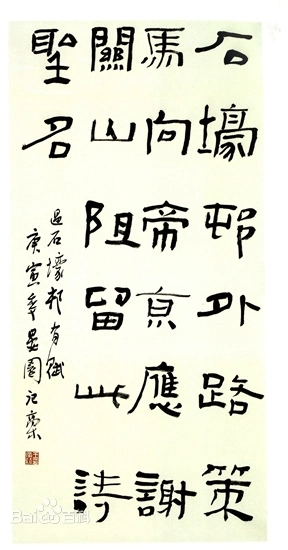 石壕邨外路策
馬向帝亰應謝
關山阻留此詩
聖名
過石壕邨有賦
庚寅年墨園
Baidu百科